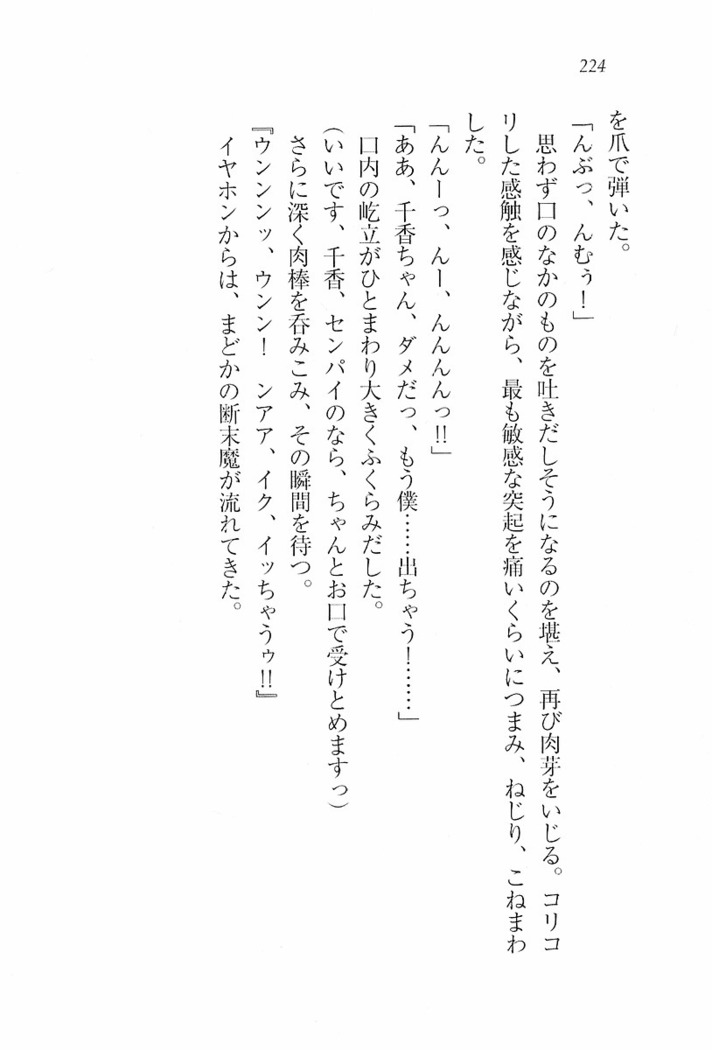 224
を爪で弾いた。
「んぶっ、んむぅ！」
思わず口のなかのものを吐きだしそうになるのを堪え、再び肉芽をいじる。コリコ
リした感触を感じながら、最も敏感な突起を痛いくらいにつまみ、ねじり、こねまわ
した。
「んんーっ、んー、んんんんっ!!」
「ああ、千香ちゃん、ダメだっ、もう僕……出ちゃう！……」
口内の屹立がひとまわり大きくふくらみだした。
(いいです、千香、センパイのなら、ちゃんとお口で受けとめますっ)
さらに深く肉棒を呑みこみ、その瞬間を待つ。
『ウンンンッ、ウンン！　ンアア、イク、イッちゃうゥ!!』
イヤホンからは、まどかの断末魔が流れてきた。